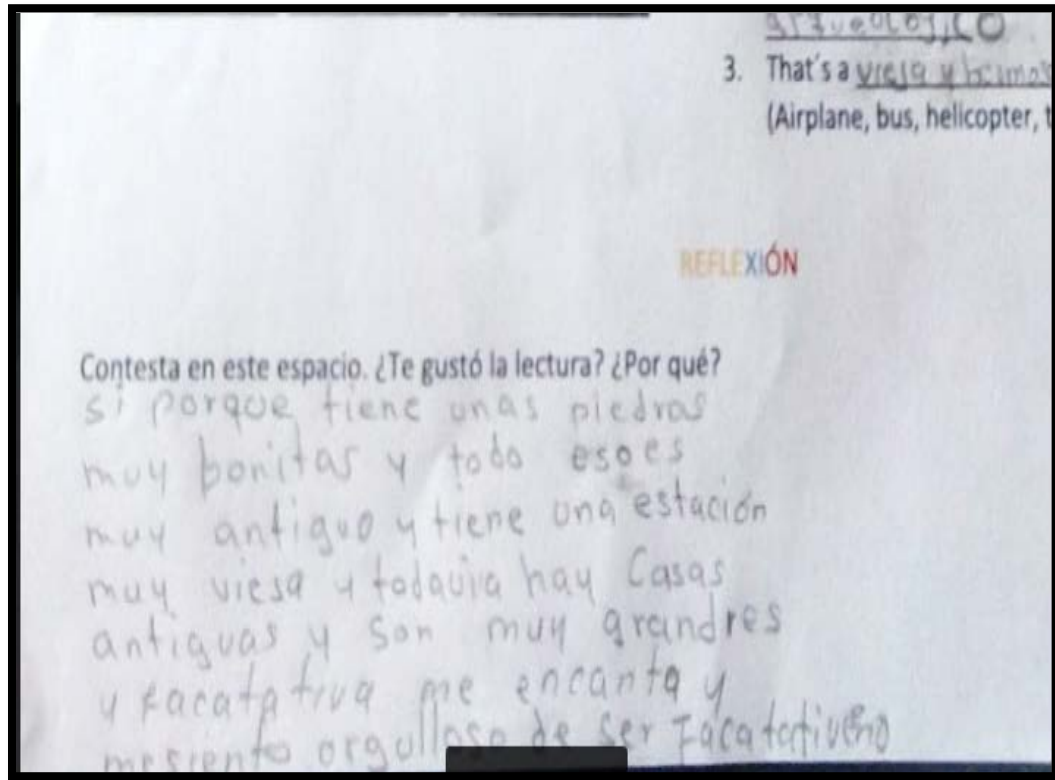 arqueológico
3. That's a viesa y
(Airplane, bus, helicopter,
REFLEXIÓN
Contesta en este espacio. ¿Te gustó la lectura? ¿Por qué?
si porque tiene unas piedras
muy bonitas y todo eso es
muy antiguo y tiene una estación
muy viesa y todavia hay Casas
antiguas y son muy grandres
y facatativa me encanta y
mesiento orgulloso de ser Facatativeño